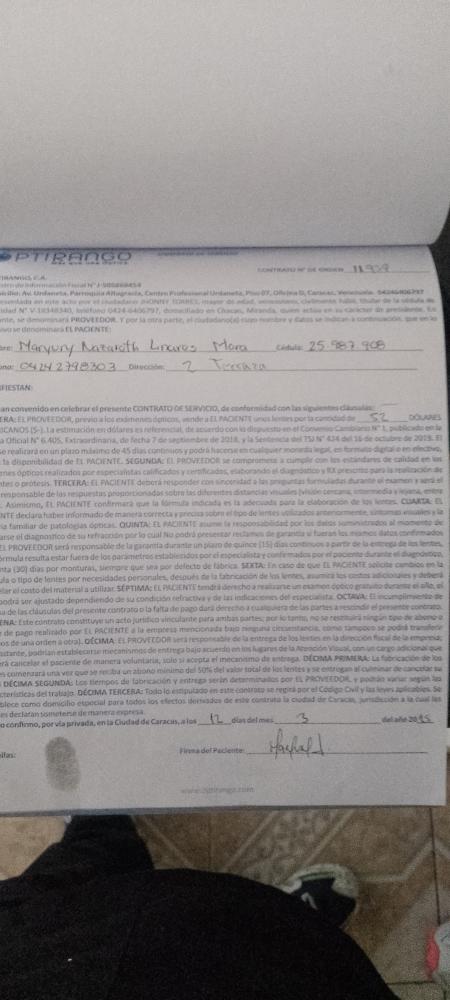 OPTIRANGO
CONTRATO N° DE ORDEN 11939
TIRANGO, C.A.
istro de Información Fiscal N° J-505868454
icilio: Av. Urdaneta, Parroquia Altagracia, Centro Profesional Urdaneta, Piso 07, Oficina D, Caracas, Venezuela. 04246406797
esentada en este acto por el ciudadano JHONNY TORRES, mayor de edad, venezolano, civilmente hábil, titular de la cédula de
idad N° V-18348340, teléfono 0424-6406797, domiciliado en Chacao, Miranda, quien actúa en su carácter de presidente. En
nte, se denominará PROVEEDOR. Y por la otra parte, el ciudadano(a) cuyo nombre y datos se indican a continuación, que en lo
ivo se denominará EL PACIENTE:
bre: Maryury Nazareth Linares Mora Cédula: 25.987.908
ono: 04242798303 Dirección: 2 Terraza
IFIESTAN:
an convenido en celebrar el presente CONTRATO DE SERVICIO, de conformidad con las siguientes cláusulas:
ERA: EL PROVEEDOR, previo a los exámenes ópticos, vende a EL PACIENTE unos lentes por la cantidad de 52 DÓLARES
ICANOS ($-). La estimación en dólares es referencial, de acuerdo con lo dispuesto en el Convenio Cambiario N° 1, publicado en la
a Oficial N° 6.405, Extraordinaria, de fecha 7 de septiembre de 2018, y la Sentencia del TSJ N° 424 del 16 de octubre de 2019. El
se realizará en un plazo máximo de 45 días continuos y podrá hacerse en cualquier moneda legal, en formato digital o en efectivo,
la disponibilidad de EL PACIENTE. SEGUNDA: EL PROVEEDOR se compromete a cumplir con los estándares de calidad en los
enes ópticos realizados por especialistas calificados y certificados, elaborando el diagnóstico y RX prescrito para la realización de
ntes o prótesis. TERCERA: EL PACIENTE deberá responder con sinceridad a las preguntas formuladas durante el examen y será el
responsable de las respuestas proporcionadas sobre las diferentes distancias visuales (visión cercana, intermedia y lejana, entre
). Asimismo, EL PACIENTE confirmará que la fórmula indicada es la adecuada para la elaboración de los lentes. CUARTA: EL
ENTE declara haber informado de manera correcta y precisa sobre el tipo de lentes utilizados anteriormente, síntomas visuales y la
ia familiar de patologías ópticas. QUINTA: EL PACIENTE asume la responsabilidad por los datos suministrados al momento de
arse el diagnóstico de su refracción por lo cual No podrá presentar reclamos de garantía si fueran los mismos datos confirmados
EL PROVEEDOR será responsable de la garantía durante un plazo de quince (15) días continuos a partir de la entrega de los lentes,
órmula resulta estar fuera de los parámetros establecidos por el especialista y confirmados por el paciente durante el diagnóstico,
nta (30) días por monturas, siempre que sea por defecto de fábrica. SEXTA: En caso de que EL PACIENTE solicite cambios en la
ula o tipo de lentes por necesidades personales, después de la fabricación de los lentes, asumirá los costos adicionales y deberá
elar el costo del material a utilizar. SÉPTIMA: EL PACIENTE tendrá derecho a realizarse un examen óptico gratuito durante el año, el
podrá ser ajustado dependiendo de su condición refractiva y de las indicaciones del especialista. OCTAVA: El incumplimiento de
a de las cláusulas del presente contrato o la falta de pago dará derecho a cualquiera de las partes a rescindir el presente contrato.
ENA: Este contrato constituye un acto jurídico vinculante para ambas partes; por lo tanto, no se restituirá ningún tipo de abono o
e de pago realizado por EL PACIENTE a la empresa mencionada bajo ninguna circunstancia, como tampoco se podrá transferir
os de una orden a otra). DÉCIMA: EL PROVEEDOR será responsable de la entrega de los lentes en la dirección fiscal de la empresa;
bstante, podrían establecerse mecanismos de entrega bajo acuerdo en los lugares de la Atención Visual, con un cargo adicional que
erá cancelar el paciente de manera voluntaria, solo si acepta el mecanismo de entrega. DÉCIMA PRIMERA: La fabricación de los
es comenzará una vez que se reciba un abono mínimo del 50% del valor total de los lentes y se entregan al culminar de cancelar su
DÉCIMA SEGUNDA: Los tiempos de fabricación y entrega serán determinados por EL PROVEEDOR, y podrán variar según las
cterísticas del trabajo. DÉCIMA TERCERA: Todo lo estipulado en este contrato se regirá por el Código Civil y las leyes aplicables. Se
blece como domicilio especial para todos los efectos derivados de este contrato la ciudad de Caracas, jurisdicción a la cual las
es declaran someterse de manera expresa.
o confirmo, por vía privada, en la Ciudad de Caracas, a los 12 días del mes 3 del año 2025
illas: Firma del Paciente:
www.optirango.com